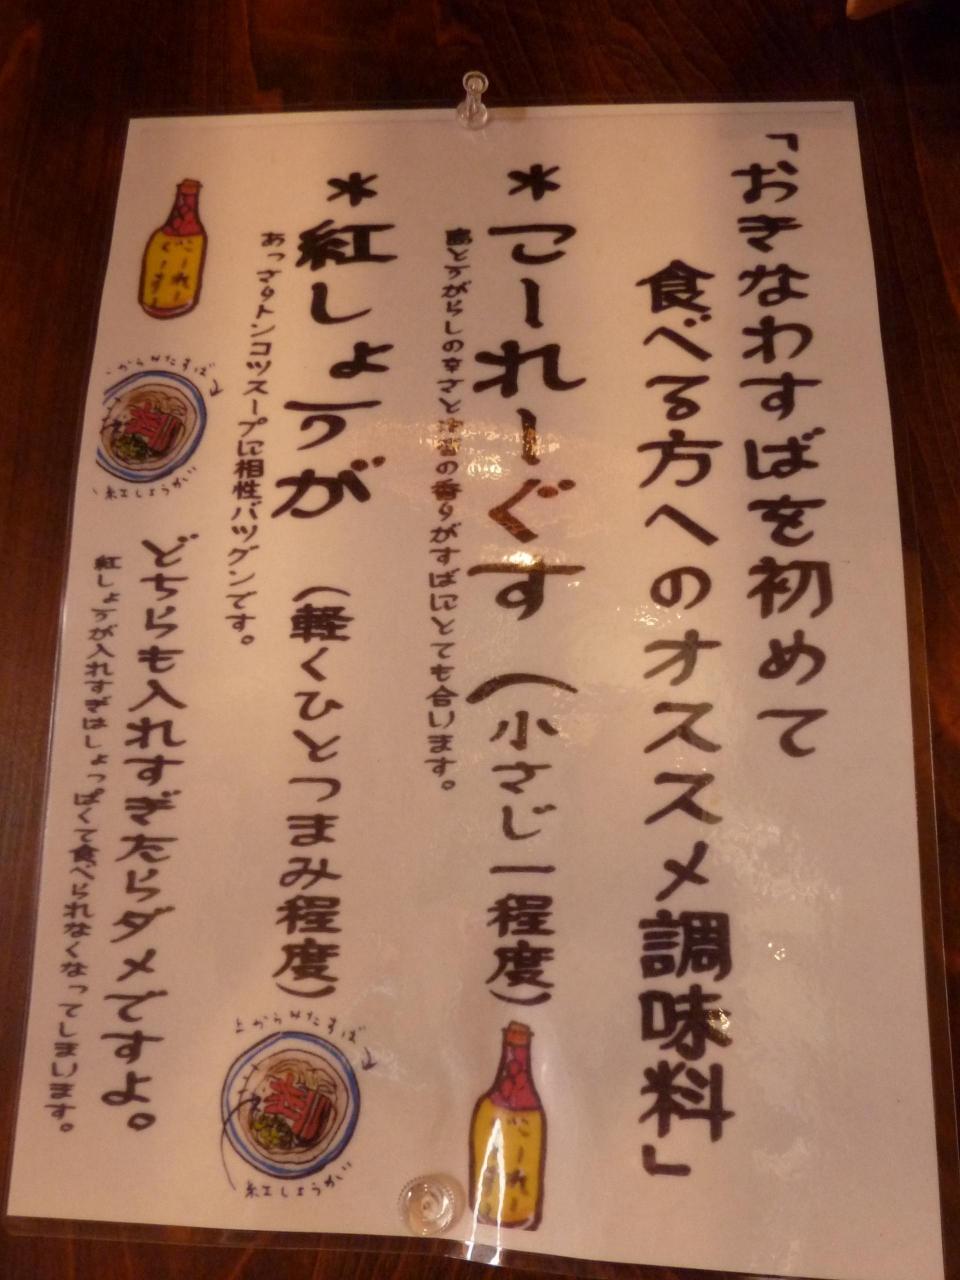 「おきなわすばを初めて
食べる方へのオススメ調味料」
＊こーれーぐす（小さじ一程度）
島とうがらしの辛さと泡盛の香りがすばにとても合います。
＊紅しょうが（軽くひとつまみ程度）
あっさりトンコツスープに相性バツグンです。
どちらも入れすぎたらダメですよ。
紅しょうが入れすぎはしょっぱくて食べられなくなってしまいます。
こーれー
ぐーすー
からみたすば
紅しょうが
上からみたすば
紅しょうが
こーれー